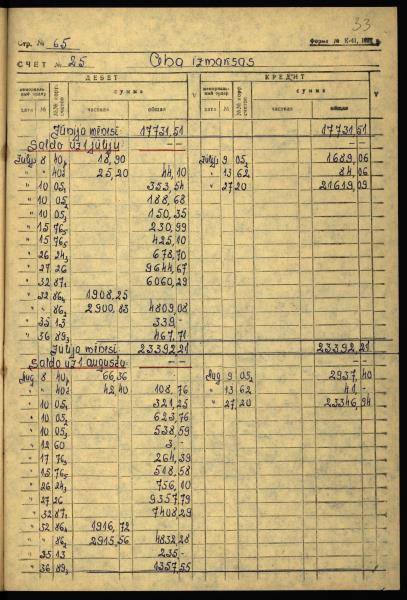 33
Стр. № 65 Форма № К-41,
СЧЕТ № 25 Citia izmaksas
ДЕБЕТ КРЕДИТ
сумма сумма
дата № частная общая дата № частная общая
Jūnija mēnesī 17731,51 17731,51
Saldo uz 1 jūliju — —
Jūlijs 8 40₁ 18,90 Jūlijs 9 05₂ 1689,06
" " 40² 25,20 44,10 " 13 62 84,06
" 10 05₁ 353,54 " 27 20 21619,09
" 10 05₂ 188,68
" 10 05₃ 150,35
" 15 76₃ 230,99
" 15 76₅ 425,10
" 26 24₃ 678,70
" 27 26 9644,67
" 32 87₁ 6060,29
" 32 86₁ 1908,25
" " 86₂ 2900,83 4809,08
" 35 13 339,-
" 36 89₃ 467,71
Jūlija mēnesī 23392,21 23392,21
Saldo uz 1 augustu — —
Aug 8 40₁ 66,36 Aug 9 05₂ 2937,40
" " 40² 42,40 108,76 " 13 62 41,-
" 10 05₁ 321,25 " 27 20 23346,94
" 10 05₂ 623,76
" 10 05₃ 538,59
" 12 60 3,-
" 17 76₃ 264,39
" 15 76₅ 518,58
" 26 24₃ 756,10
" 27 26 9357,79
" 32 87₁ 7408,29
" 32 86₁ 1916,72
" " 86₂ 2915,56 4832,28
" 35 13 235,-
" 36 89₃ 1357,55